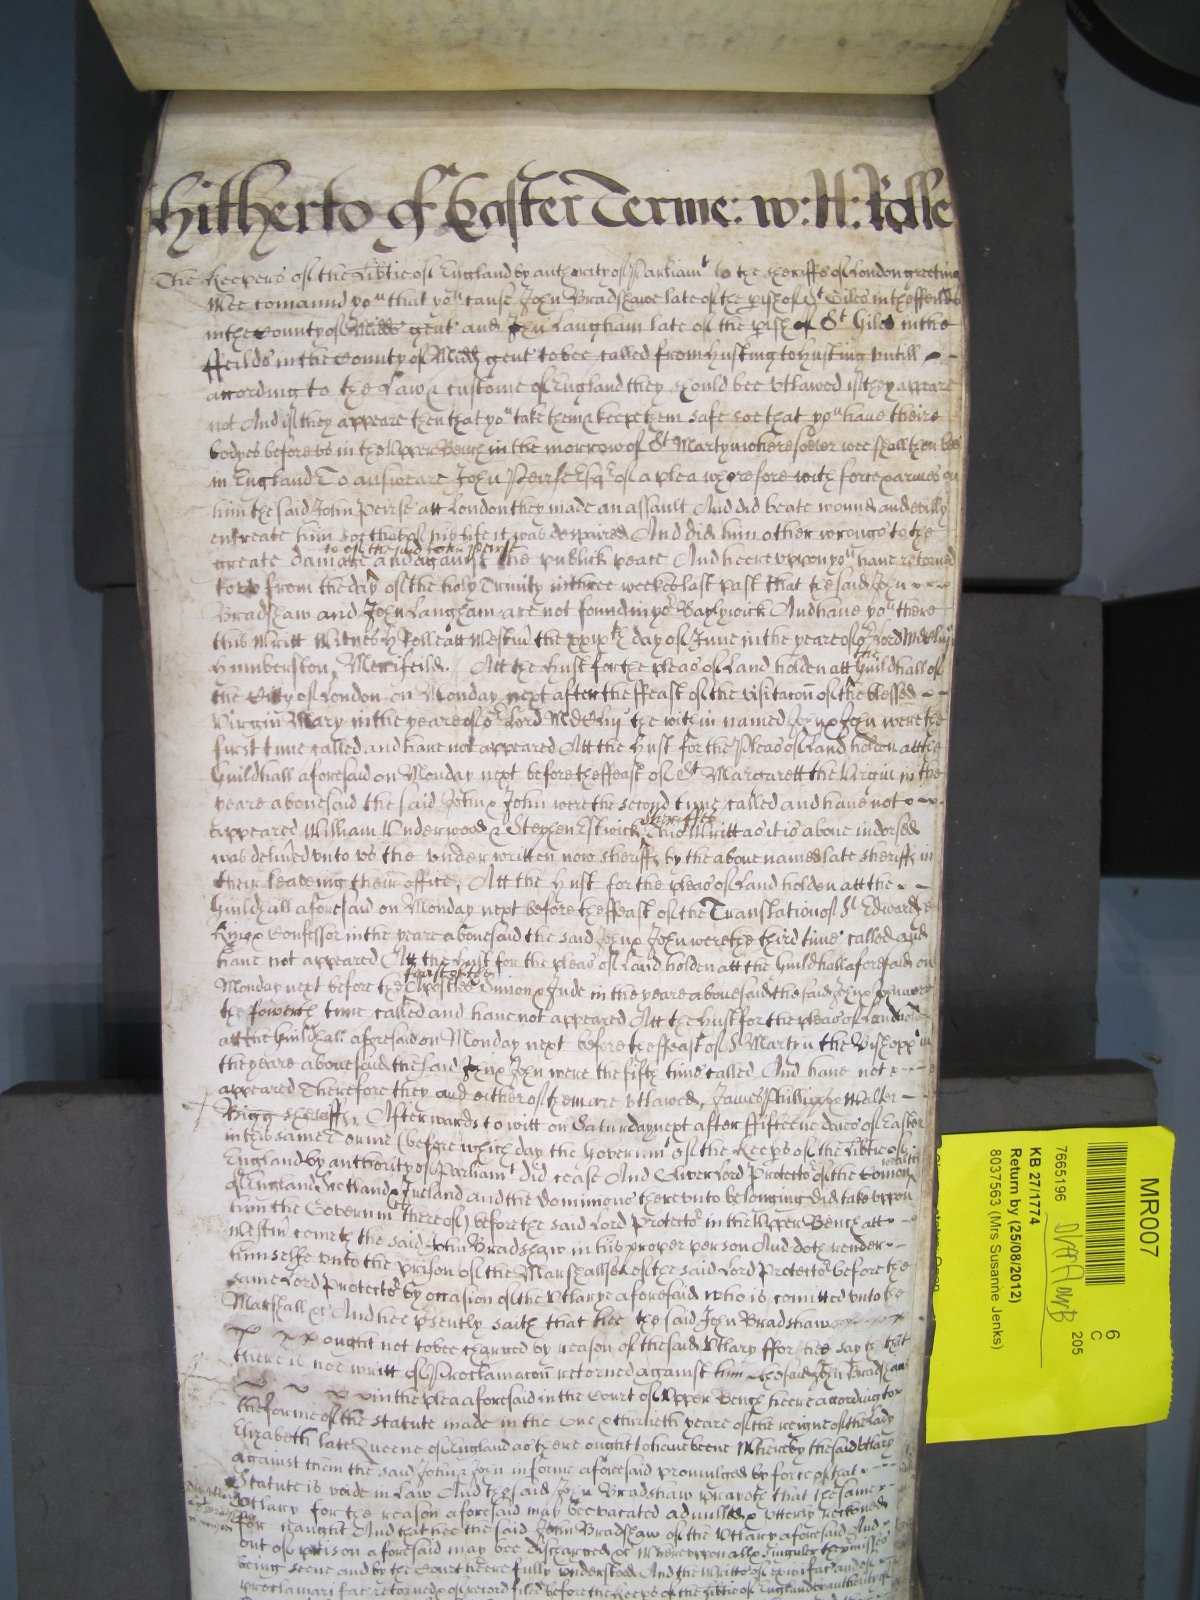 Hitherto of Easter Terme: W: H: Rolle
The Keepers of the Libtie of England by authority of Parliamt to the sheriffs of London greeting
Wee comaund you that you cause John Bradshawe late of the pish of St Giles in the ffeilds
in the County of Midds gent and John Langham late of the pish of St Giles in the
ffeilds in the County of Midds gent to bee called from husting to husting untill
according to the Law & custome of England they should bee utlawed if they appeare
not And if they appeare then that you take them & keepe them safe soe that you have theire
bodyes before us in the Upper Bench in the morrow of St Martyn wheresoever wee shall then bee
in England To answeare John Peirse Esqr of a plea wherefore with force & armes on
him the said John Peirse att London they made an assault And did beate wound and evilly
entreate him soe that of his life it was despaired And did him other wrongs to the
great damage of the said John Peirse and against the publick peace And heereuppon you have retorned
to us from the day of the holy Trinity in three weekes last past that the said John
Bradshaw and John Langham are not found in yor Baylywick And have you there
this Writt Witnes H Rolle att Westm the day of June in the yeare of or Lord
Humberston, Merifeild. Att the Hust for the pleas of Land holden att the Guildhall of
the Citty of London on Monday next after the ffeast of the visitacon of the blessed
Virgin Mary in the yeare of or Lord MDCLiij the within named John & John were the
first time called and have not appeared Att the Hust for the Pleas of Land holden att the
Guildhall aforesaid on Monday next before the ffeast of St Margarett the Virgin in the
yeare abovesaid the said John & John were the second time called and have not
appeared William Underwood & Stephen Estwick Sheriffes And Writt as it is above indorsed
was delived unto us the under written now sheriffs by the above named late sheriffs in
their leaveing their office, Att the Hust for the pleas of Land holden att the
Guildhall aforesaid on Monday next before the ffeast of the Translation of St Edward
King & Confessor in the yeare abovesaid the said John & John were the third time called and
have not appeared Att the Hust for the pleas of Land holden att the Guildhall aforesaid on
Monday next before the feast of the Apostles Simon & Jude in the yeare abovesaid the said John & John were
the fowerth time called and have not appeared Att the Hust for the pleas of Land holden
att the Guildhall aforesaid on Monday next before the ffeast of St Martyn the Bishopp in
the yeare abovesaid the said John & John were the fifth time called And have not
appeared Therefore they and either of them are utlawed, James Phillipps & Walter
Bigg sheriffs, Afterwards to witt on Saturday next after ffifteene daies of Easter
in this same Terme (before which day the Governmt of the Keeps of the Libtie of
England by authority of Parliamt did cease And Oliver Lord Protector of the Comonwealth
of England Scotland & Ireland and the Dominions thereunto belonging did take uppon
him the Governmt thereof) before the said Lord Protector in the Upper Bench att
Westm cometh the said John Bradshaw in his proper person And doth render
himselfe unto the prison of the Marshallsea of the said Lord Protector before the
same Lord Protector by occasion of the Utlarye aforesaid who is comitted unto the
Marshall &c And hee psently saith that hee the said John Bradshaw
ought not to bee charged by reason of the said Utlary ffor hee sayth that
there is noe writt of Proclamacon retorned against him the said John Bradshaw
in the plea aforesaid in the Court of Upper Bench heere according to
the forme of the statute made in the One & thirtieth yeare of the reigne of the Lady
Elizabeth late Queene of England as there ought to have beene Whereby the said Utlary
against them the said John & John in forme aforesaid promulged by force of that
Statute is voide in Law And the said John Bradshaw prayeth that the same
Utlary for the reason aforesaid may bee vacated adnulled & utterly reckoned
for naught And that hee the said John Bradshaw of the Utlary aforesaid And
out of prison aforesaid may bee discharged &c Whereuppon all & singuler the pmisses
being seene and by the Court heere fully understood And the Writts of exigi fac and of
proclamari fac retorned & of record filed before the Keeps of the Libtie of England by authority of
MR007
6
C
205
7665196
KB 27/1774
Return by (25/08/2012)
8037563 (Mrs Susanne Jenks)